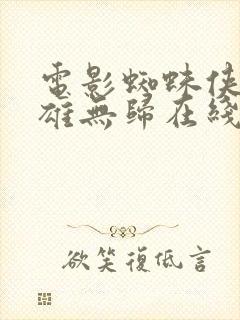 電影蜘蛛俠
雄無歸在綫
欲笑復低言